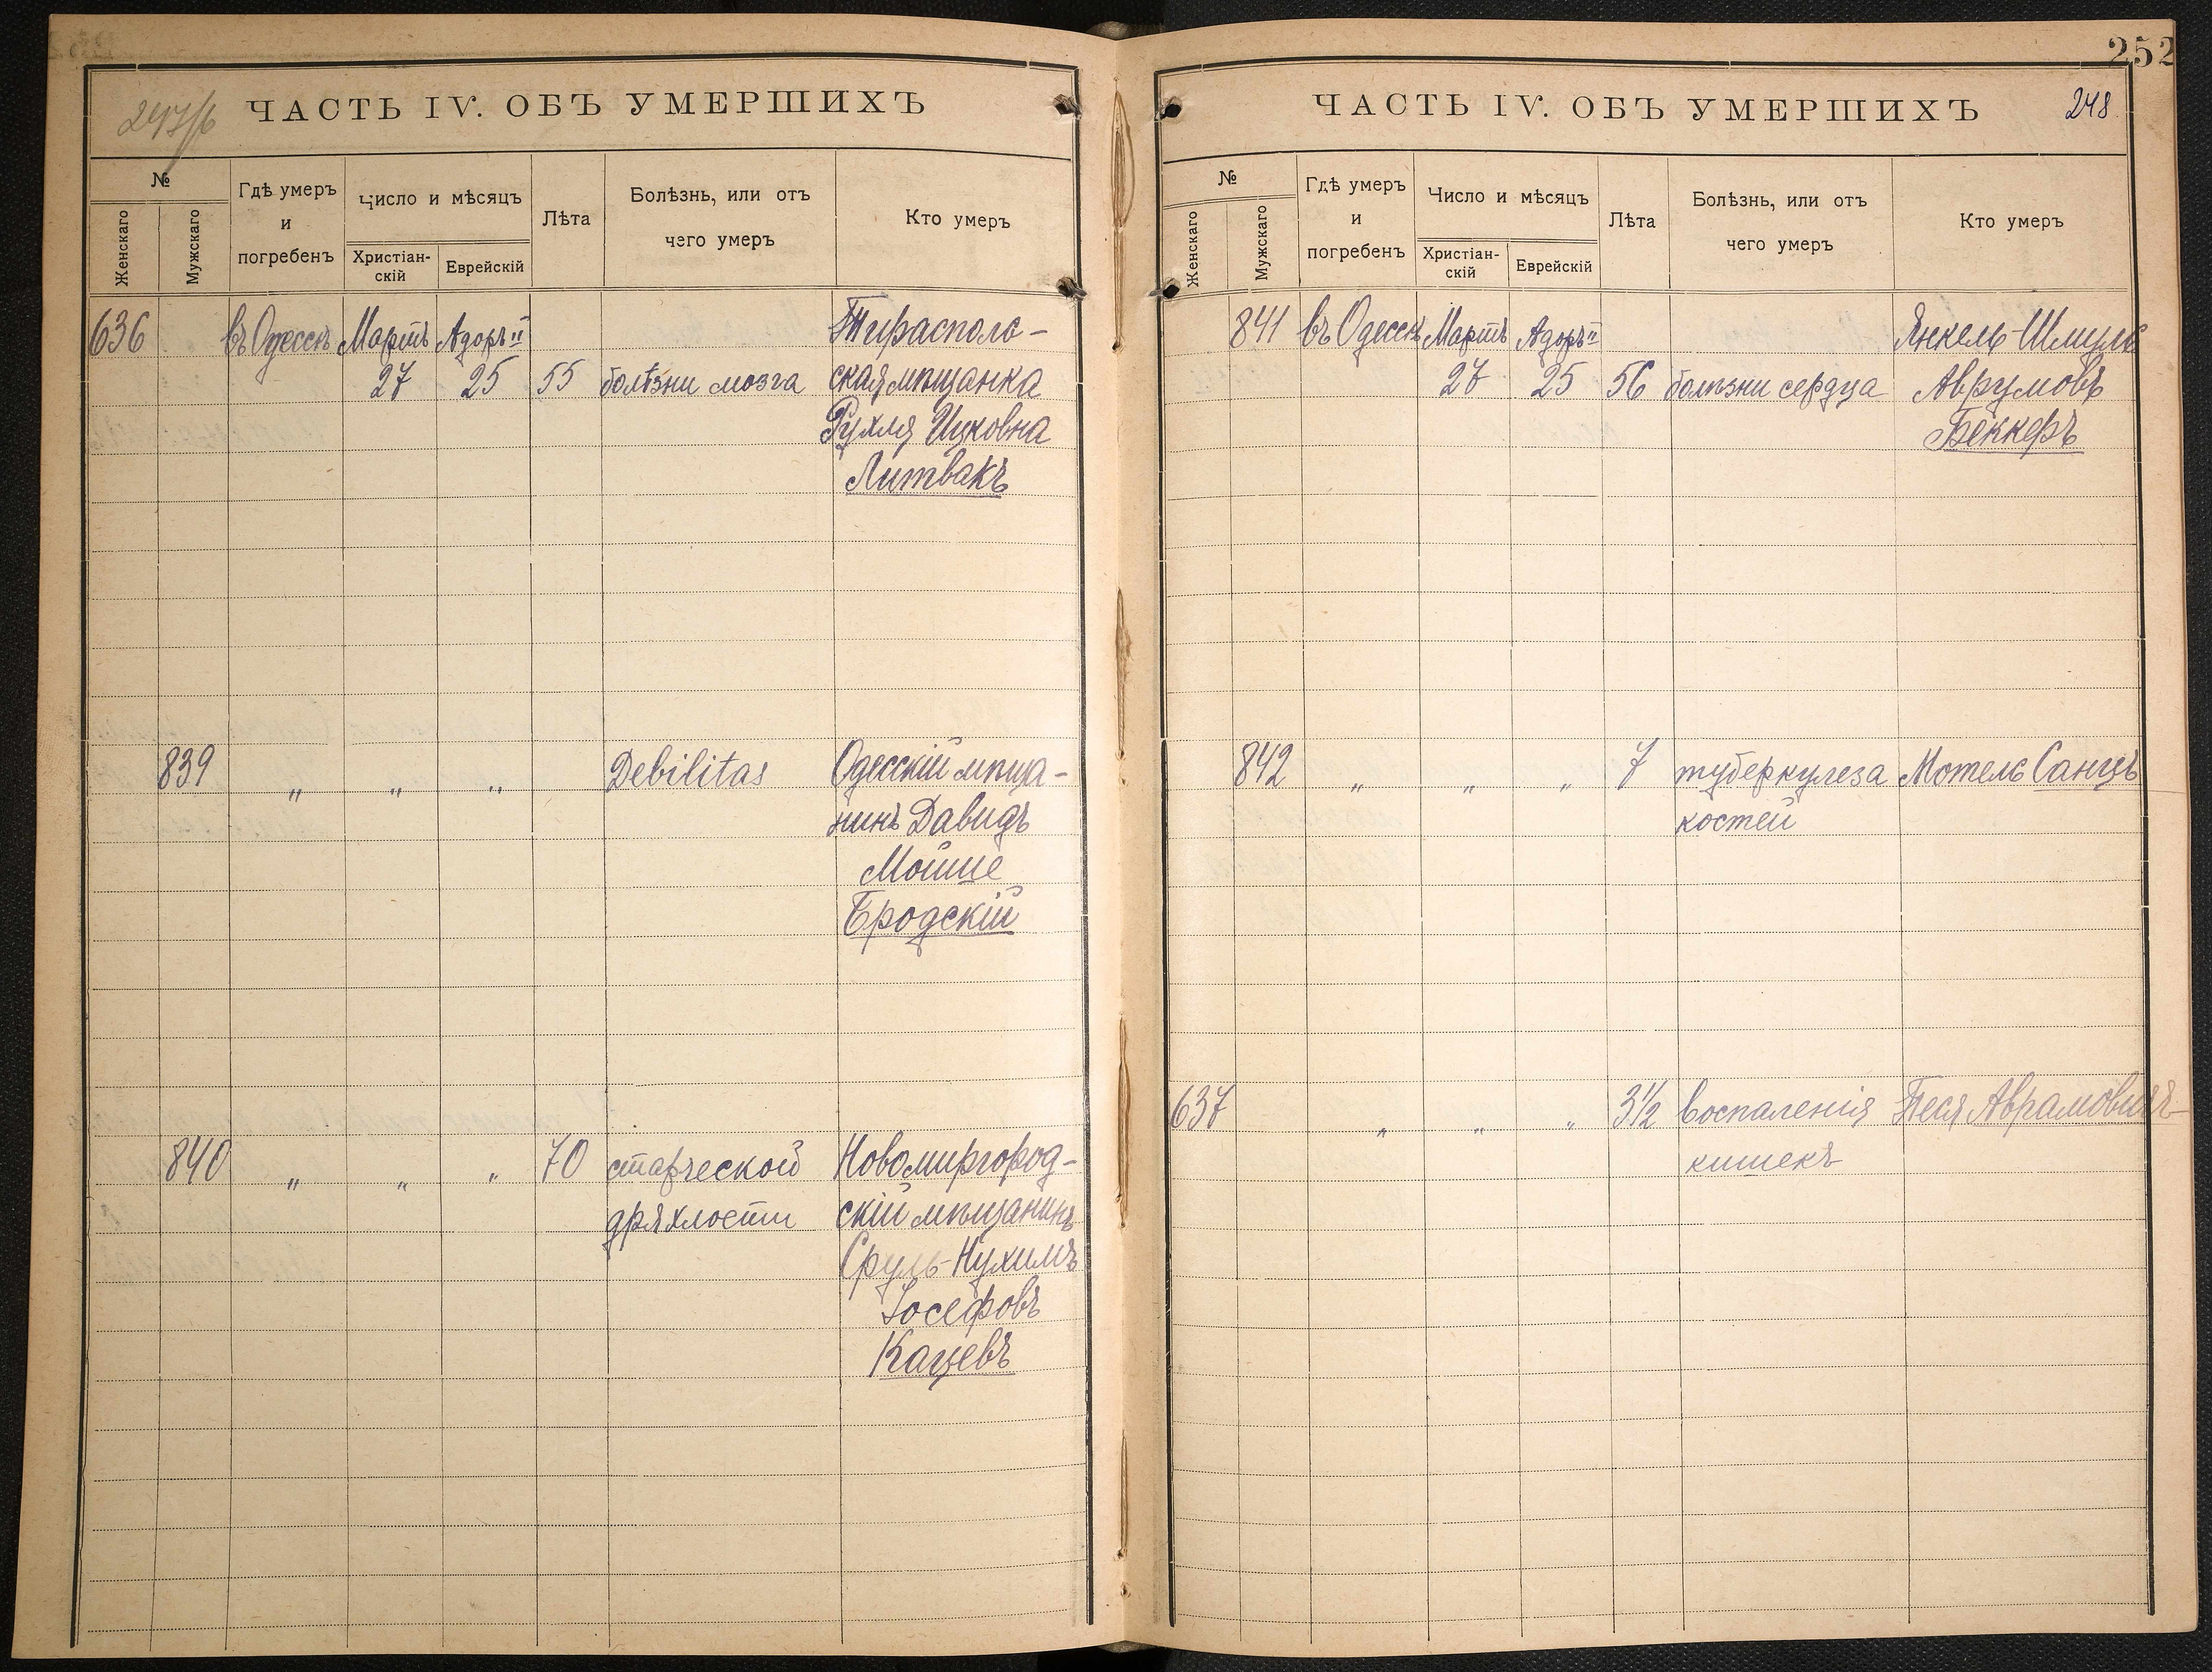 247/б
ЧАСТЬ IV. ОБЪ УМЕРШИХЪ
№
Женскаго
Мужскаго
Гдѣ умеръ
и
погребенъ
Число и мѣсяцъ
Христіан-
скій
Еврейскій
Лѣта
Болѣзнь, или отъ
чего умеръ
Кто умеръ
636 въ Одессѣ Мартъ Адоръ II Тирасполь-
27 25 55 болѣзни мозга ская мѣщанка
Рухля Ицковна
Литвакъ
839 „ „ „ Debilitas Одесскій мѣща-
нинъ Давидъ
Мойше
Бродскій
840 „ „ „ 70 старческой Новомиргород-
дряхлости скій мѣщанинъ
Сруль-Нухимъ
Іосефовъ
Кацевъ
252
ЧАСТЬ IV. ОБЪ УМЕРШИХЪ
248
№
Женскаго
Мужскаго
Гдѣ умеръ
и
погребенъ
Число и мѣсяцъ
Христіан-
скій
Еврейскій
Лѣта
Болѣзнь, или отъ
чего умеръ
Кто умеръ
841 въ Одессѣ Мартъ Адоръ II Янкель-Шмуль
27 25 56 болѣзни сердца Аврумовъ
Беккеръ
842 „ „ „ 7 туберкулеза Мотель Санцъ
костей
637 „ „ „ 3½ воспаленія Песя Аврамовичъ
кишекъ